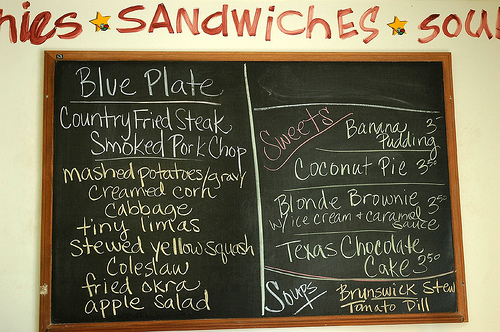 hies SANDWICHES SOU
Blue Plate
Country Fried Steak
Smoked Pork Chop
mashed potatoes/gravy
creamed corn
cabbage
tiny limas
stewed yellow squash
coleslaw
fried okra
apple salad
Sweets
Banana 3-
Pudding
Coconut Pie 3.50
Blonde Brownie 3.50
w/ ice cream + caramel
sauce
Texas Chocolate
Cake 3.50
Soups
Brunswick Stew
Tomato Dill